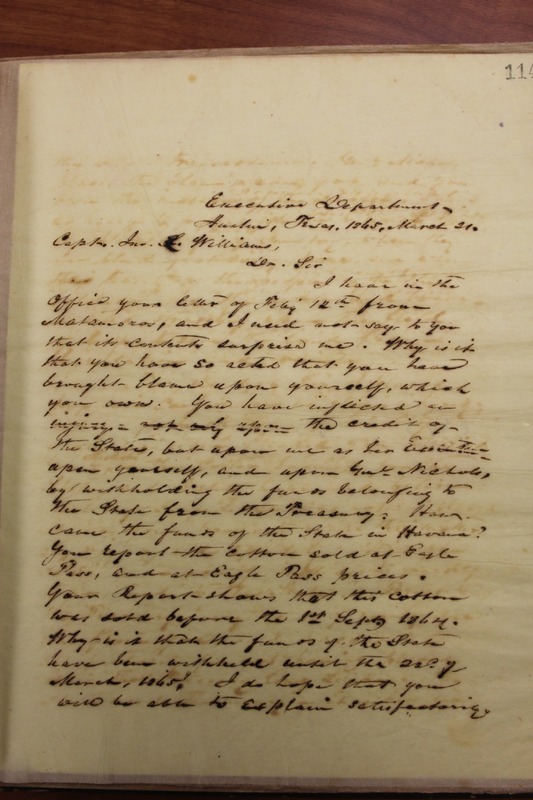 114
Executive Department
Austin, Texas, 1865, March 21.
Capt. Jno. L. Williams,
Dr. Sir
I have in the
Office your letter of Feby 12th from
Matamoros, and I need not say to you
that its contents surprise me. Why is it
that you have so acted that you have
brought blame upon yourself, which
you own. You have inflicted an
injury not only upon the credit of
the State, but upon me as her Executive
upon yourself, and upon Genl. Nichols,
by withholding the funds belonging to
the State from the Treasury. How
came the funds of the State in Havana?
You report the cotton sold at Eagle
Pass, and at Eagle Pass prices.
Your Report shows that this cotton
was sold before the 1st Sept, 1864.
Why is it that the funds of the State
have been withheld until the 22d of
March, 1865? I do hope that you
will be able to explain satisfactorily.